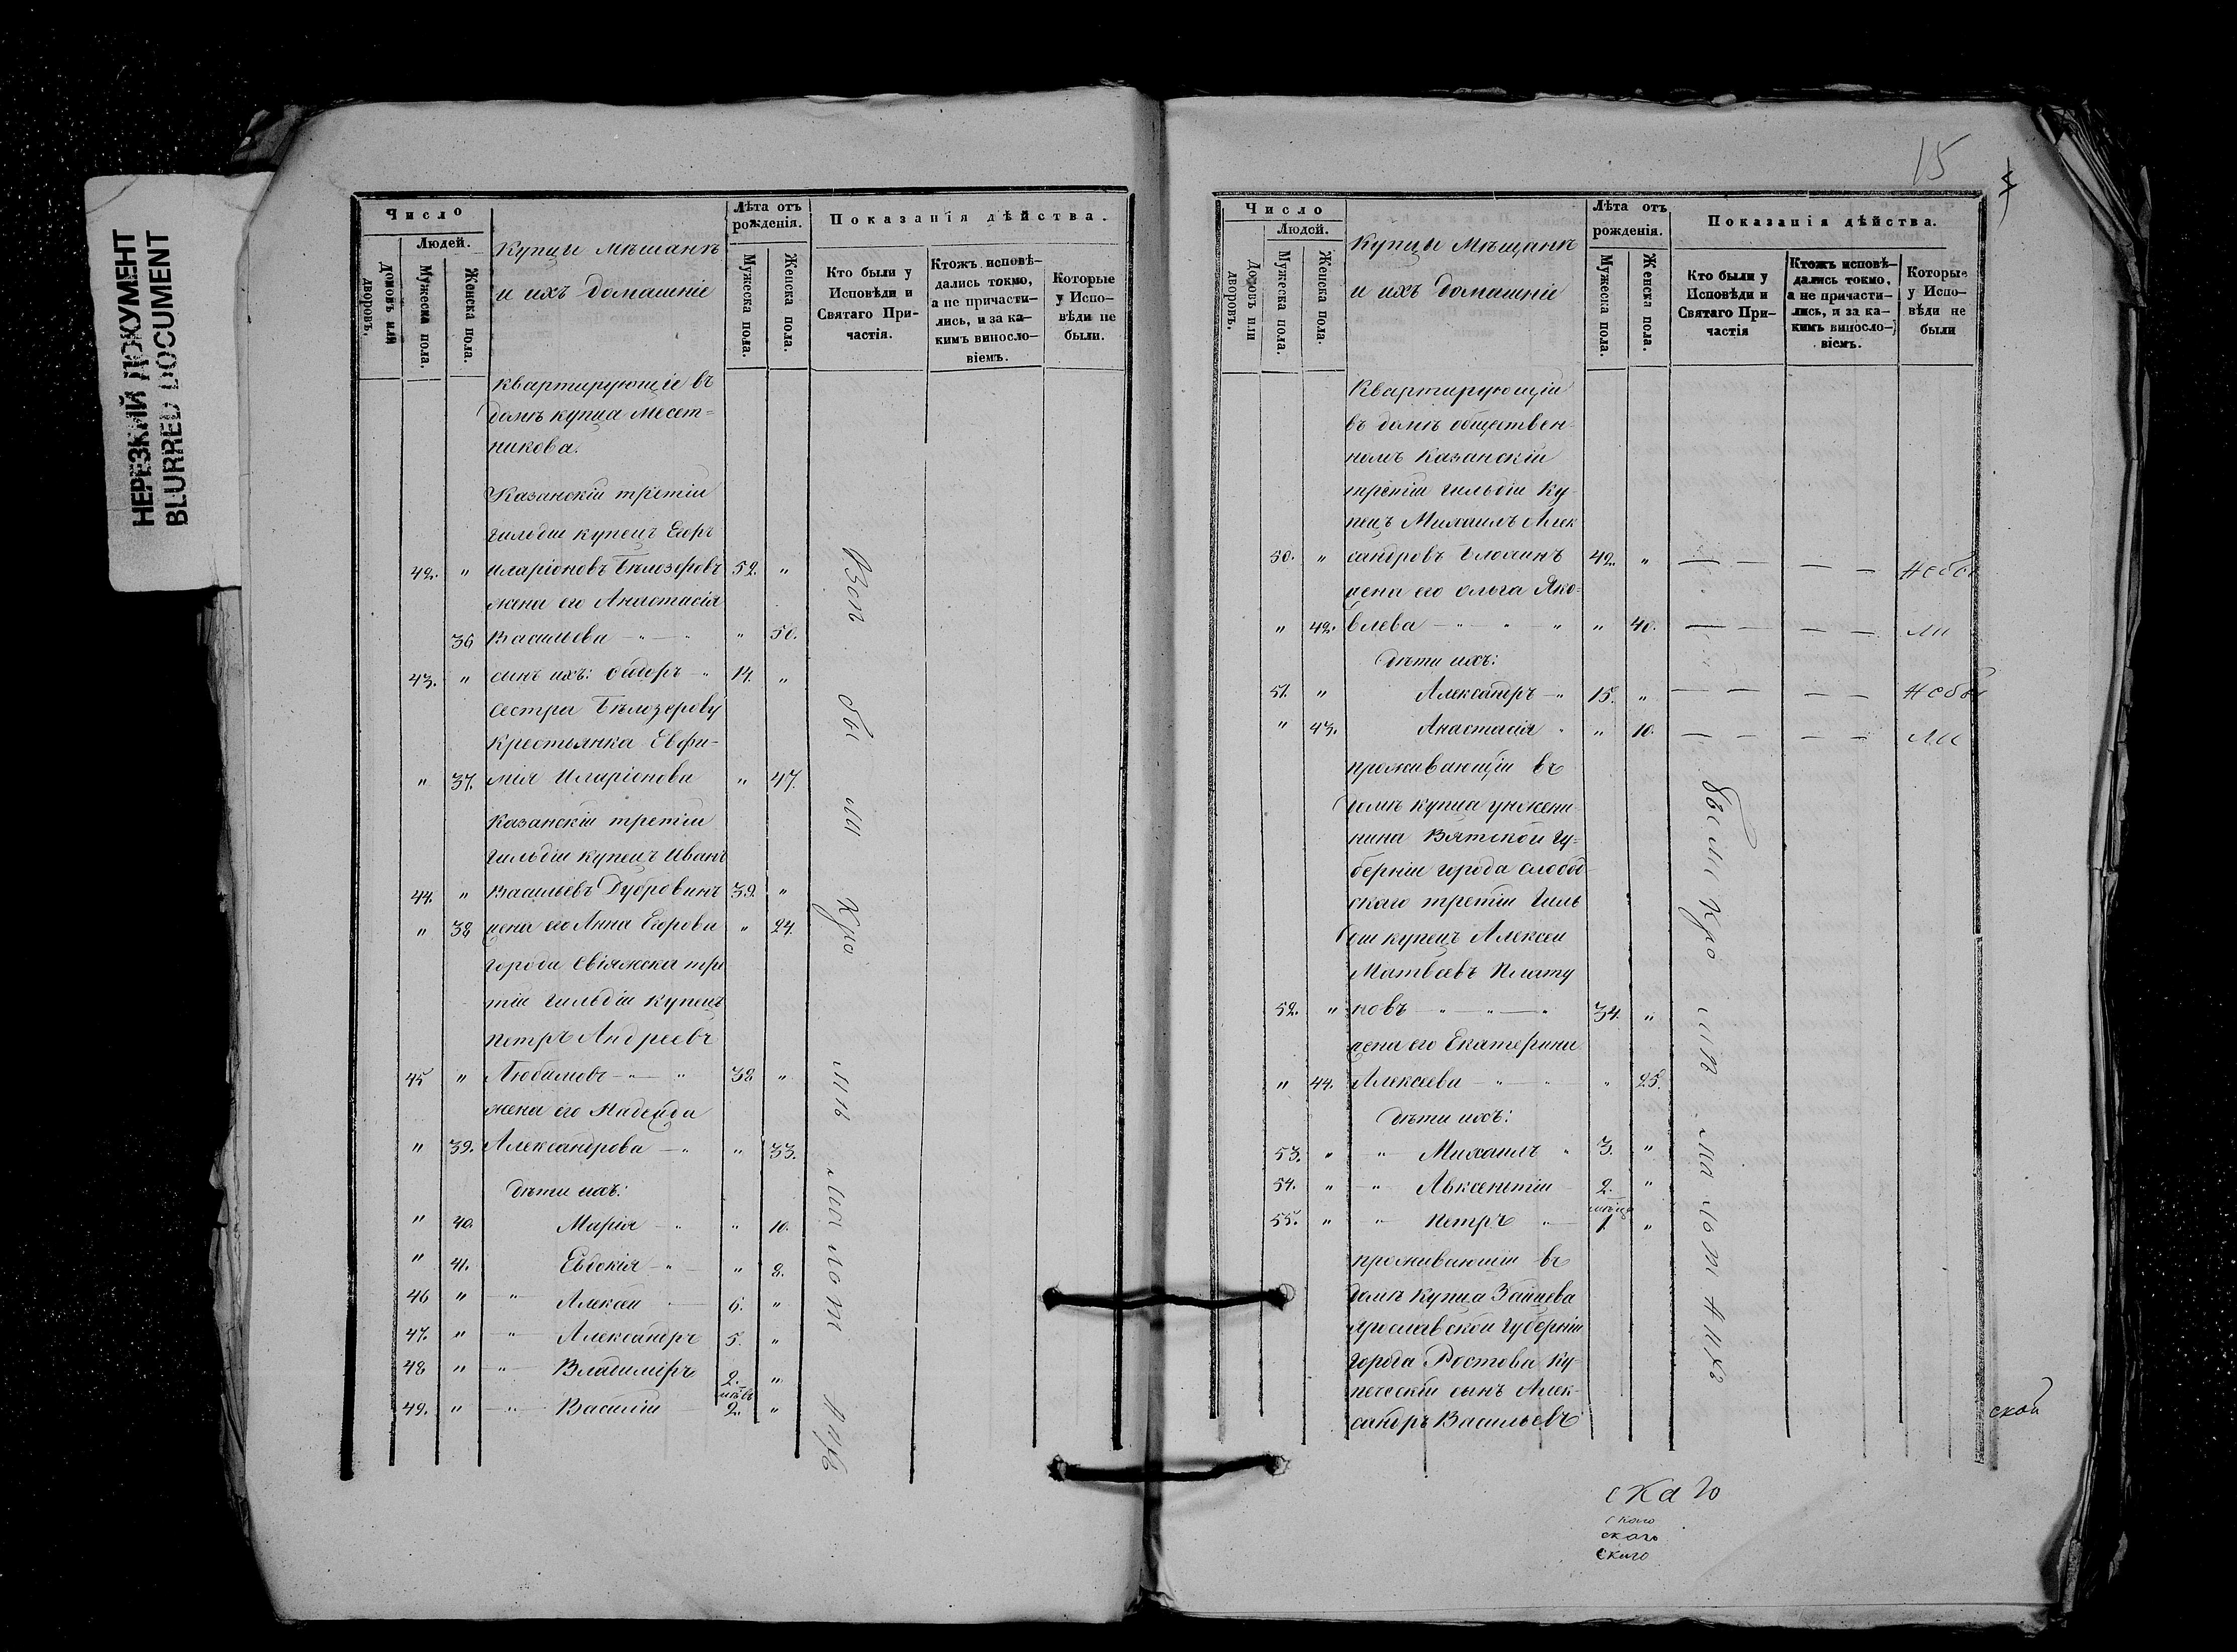 НЕРЕЗКИЙ ДОКУМЕНТ
BLURRED DOCUMENT
Число
Людей.
Домовъ или дворовъ.
Мужеска пола.
Женска пола.
Купцы мѣщанѣ
и ихъ домашніе
Лѣта отъ рожденія.
Мужеска пола.
Женска пола.
Показанія дѣйства.
Кто были у Исповѣди и Святаго Причастія.
Ктожъ исповѣдались токмо, а не причастились, и за какимъ винословіемъ.
Которые у Исповѣди не были.
квартирующіе въ
домѣ купца Месет=
никова.
Казанскій третій
гильдіи купецъ Егоръ
42. " Иларіоновъ Бѣлозеровъ 52. "
жена его Анастасія
36 Васильева " " 50.
43. " сынъ ихъ: Ѳедоръ " 14. "
сестра Бѣлозерову
крестьянка Евфи-
" 37. мія Иларіонова " 47.
Казанскій третій
гильдіи купецъ Иванъ
44. " Васильевъ Дубровинъ 39. "
" 38 жена его Анна Егорова " 24.
города Свіяжска тре
тій гильдіи купецъ
Петръ Андреевъ
45 " Любимовъ " " 38 "
жена его Надежда
" 39. Александрова " " 33.
дѣти ихъ:
" 40. Марія " " 10.
" 41. Евдокія " " 8.
46 " " Алексѣй 6. "
47. " " Александръ 5. "
48 " " Владиміръ 2. "
49. " " Василій мѣ-въ 2. "
Всѣ бы ли кро мѣ ма лол
15
Число
Людей.
Домовъ или дворовъ.
Мужеска пола.
Женска пола.
Купцы мѣщанѣ
и ихъ домашніе
Лѣта отъ рожденія.
Мужеска пола.
Женска пола.
Показанія дѣйства.
Кто были у Исповѣди и Святаго Причастія
Ктожъ исповѣдались токмо, а не причастились, и за какимъ винословіемъ.
Которые у Исповѣди не были
Квартирующій
въ домѣ обществен-
номъ Казанскій
третій гильдіи ку-
пецъ Михаилъ Алек
50. " сандровъ 42. " Не бы
жена его Ольга Яко-
" 42. влева " " " " 40. ли
дѣти ихъ:
51. " Александръ " 15. " Не бы
" 43. Анастасія " " 10. ли
проживающій въ
домѣ купца Унжени-
нина Вятской гу-
берніи города слобод-
скаго третій гиль
діи купецъ Алексѣй
Матвѣевъ Плату
52. " новъ " " " 34. "
жена его Екатерина
" 44. Алексѣева " " " 25.
дѣти ихъ:
53. " " Михаилъ " 3. "
54. " " Авксентій 2. "
55. " " Петръ " мѣсяц 1 "
были кро мѣ ма ло л
проживающій въ
домѣ купца Зайцева
Ярославской губерніи
города Ростова ку-
печескій сынъ Алек-
сандръ Васильевъ
ской
скаго
скаго
скаго
скаго